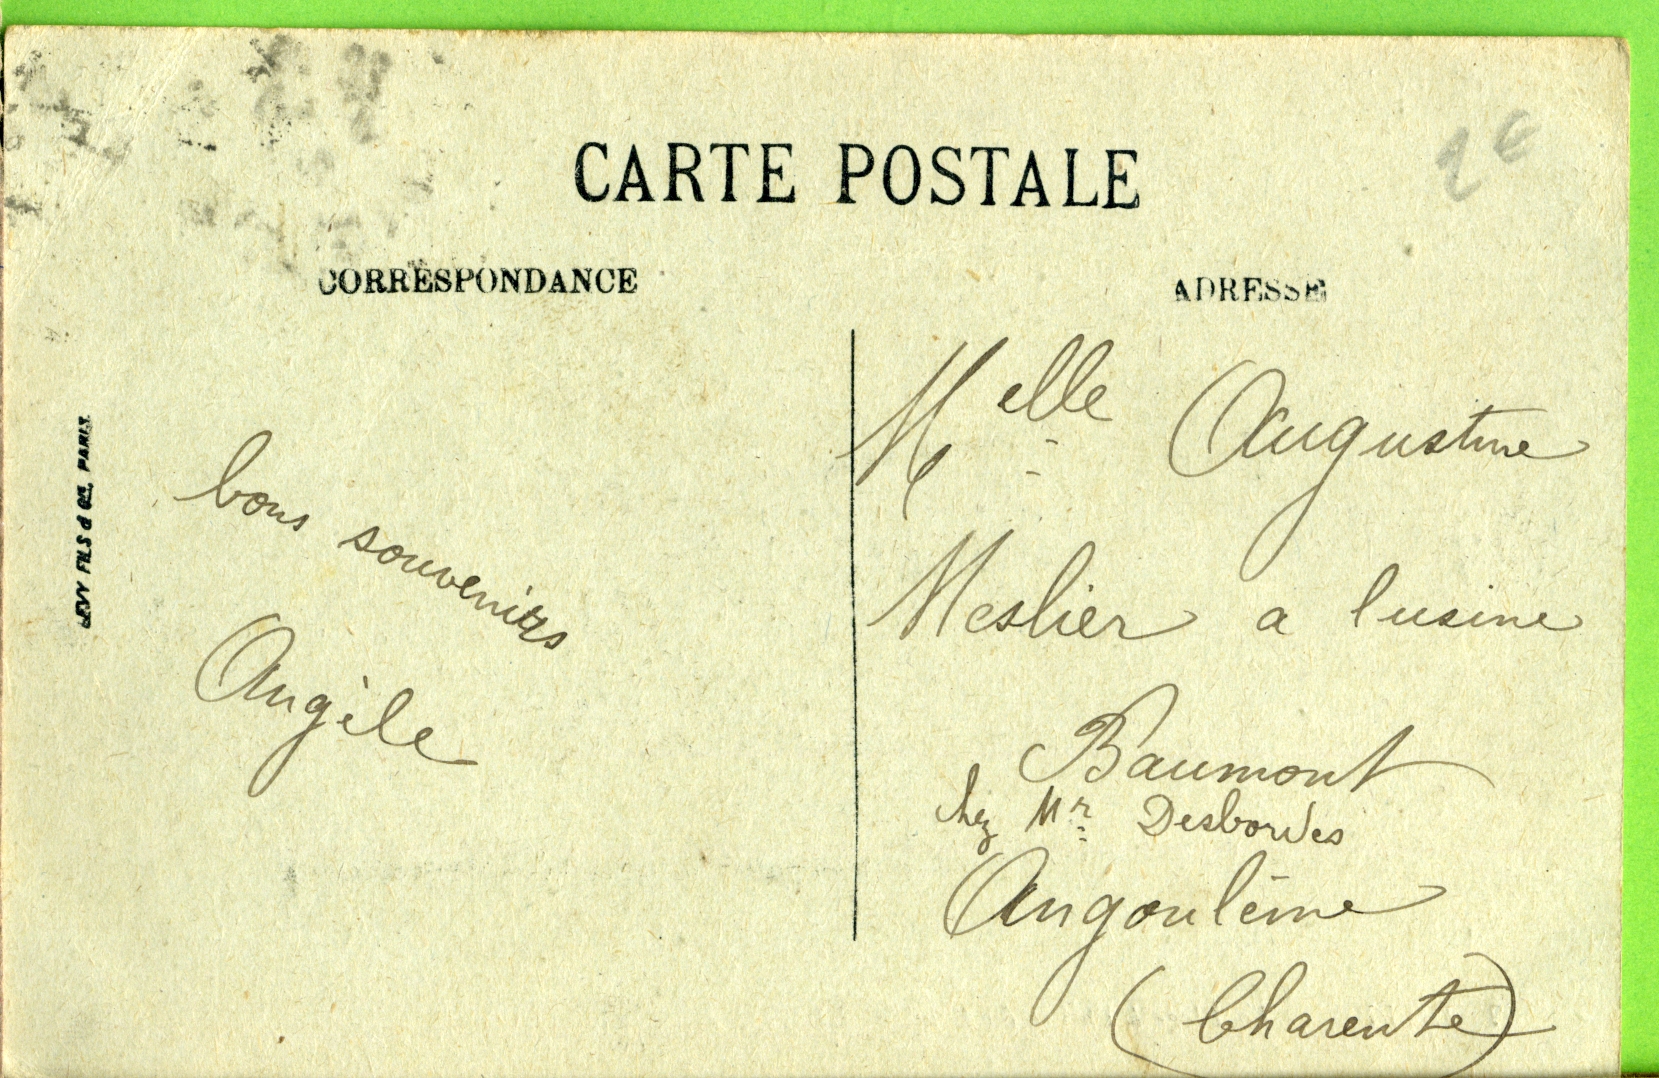 CARTE POSTALE
2€
CORRESPONDANCE
ADRESSE
LEVY FILS & Cie, PARIS.
bons souvenirs
Angèle
Melle Augustine
Meslier a lusine
Baumont
chez Mr Desbordes
Angoulême
(Charente)